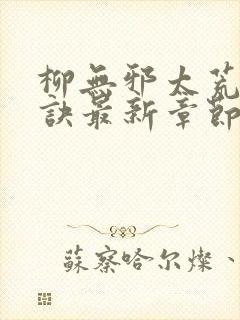 柳無邪太荒
訣最新章節
蘇察哈尔燦、